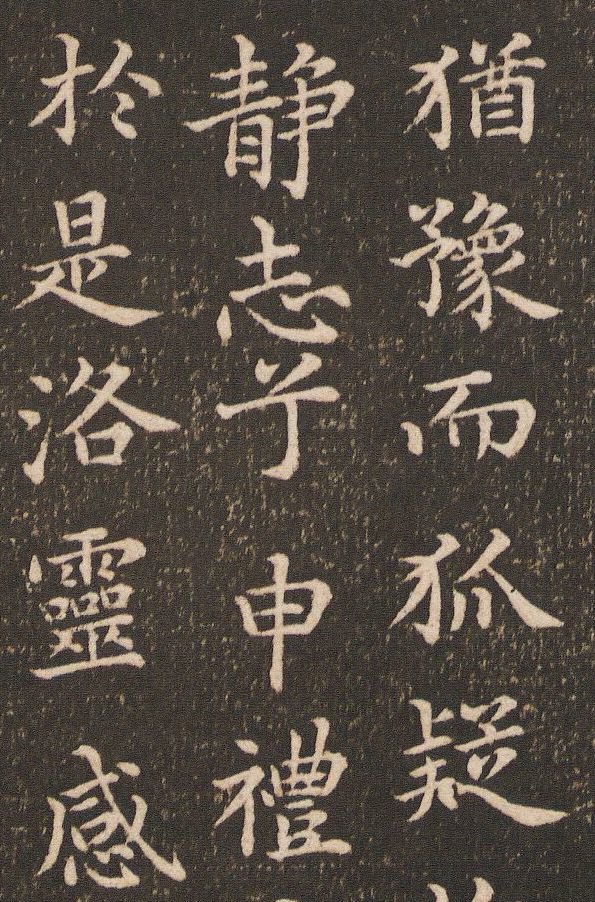 猶豫而狐疑
靜志兮申禮
於是洛靈感